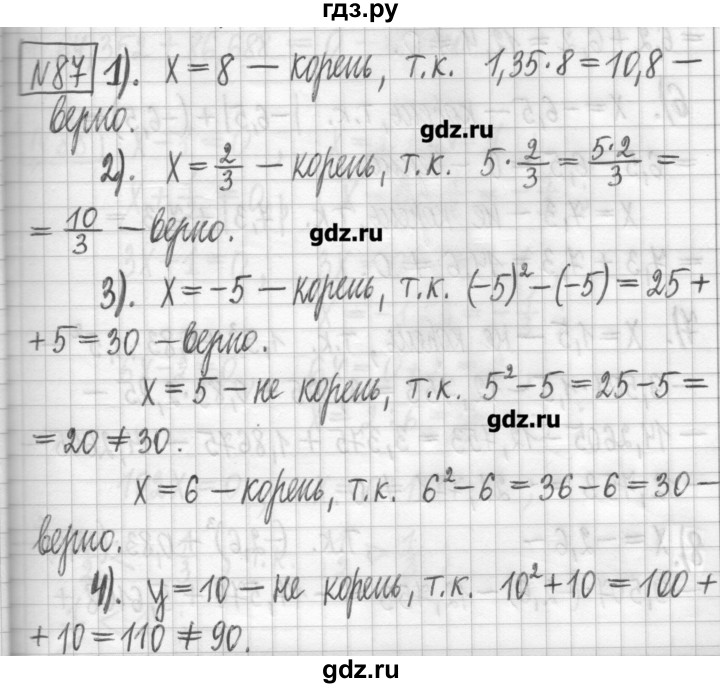 гдз.ру
№87 1). x = 8 – корень, т.к. 1,35·8 = 10,8 –
верно.
gdz.ru
2). x = 2/3 – корень, т.к. 5·2/3 = 5·2/3 =
= 10/3 – верно.
gdz.ru
3). x = -5 – корень, т.к. (-5)² - (-5) = 25 +
+ 5 = 30 – верно.
x = 5 – не корень, т.к. 5² - 5 = 25 - 5 =
gdz.ru
= 20 ≠ 30.
x = 6 – корень, т.к. 6² - 6 = 36 - 6 = 30 –
верно.
4). y = 10 – не корень, т.к. 10² + 10 = 100 +
+ 10 = 110 ≠ 90.
gdz.ru